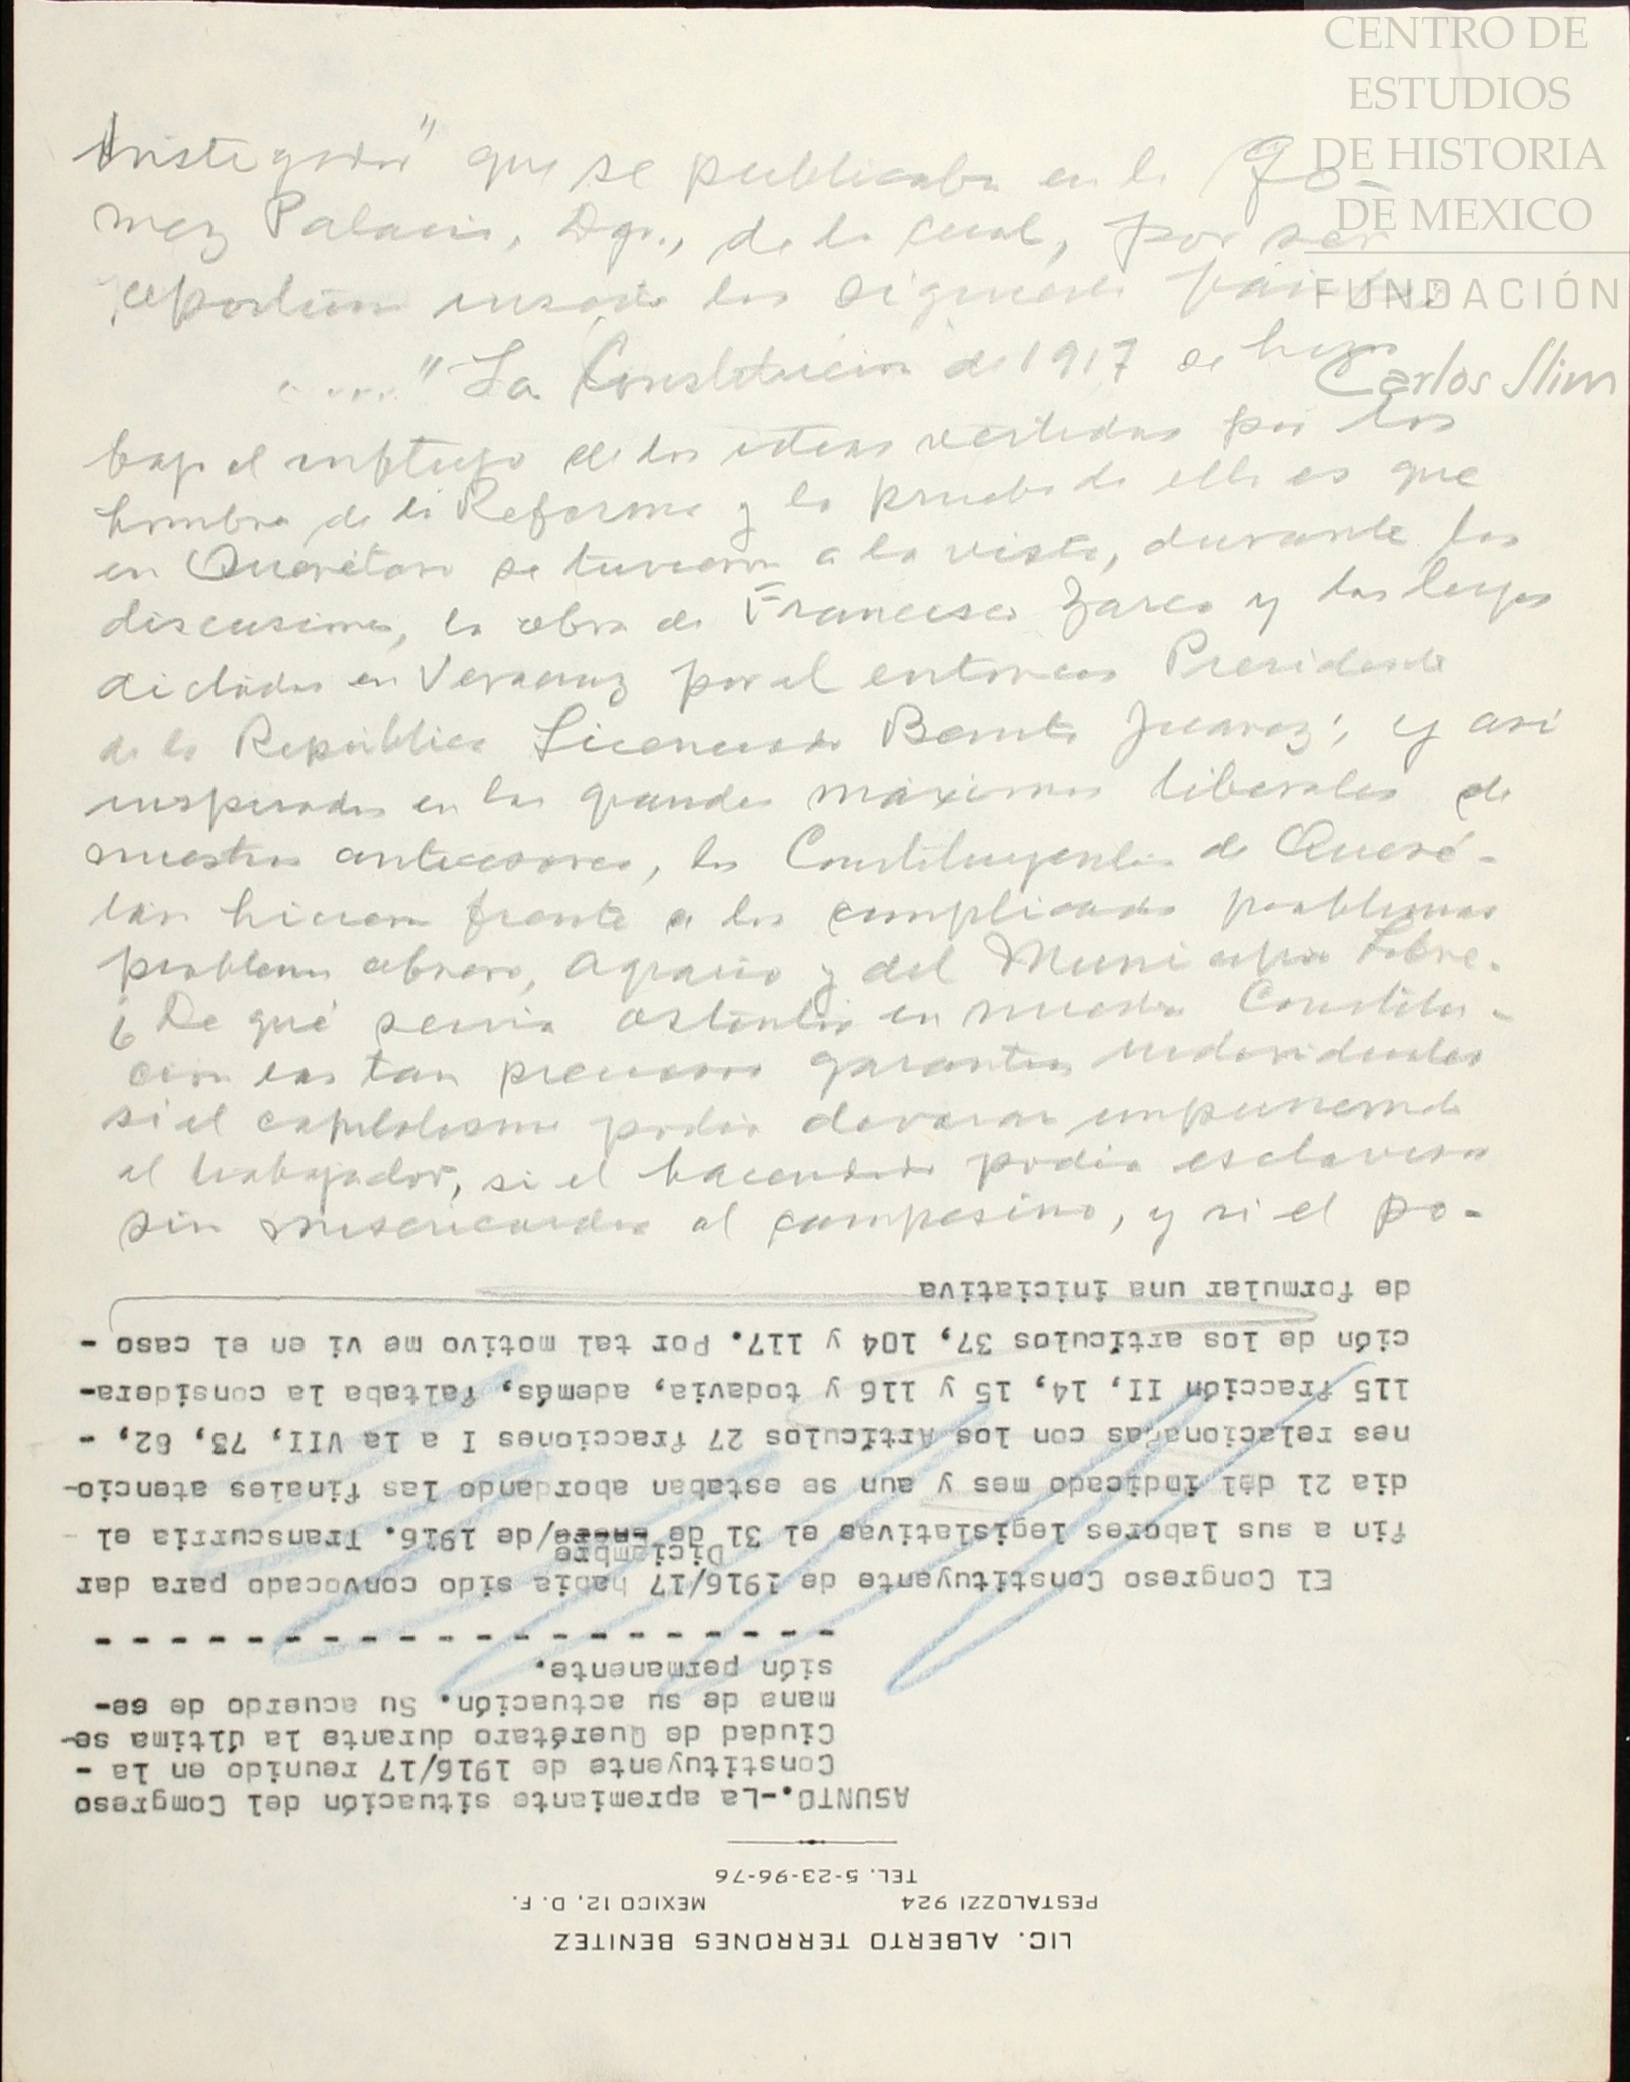 CENTRO DE
ESTUDIOS
DE HISTORIA
DE MEXICO
FUNDACIÓN
Carlos Slim
que se publicaba en la Gó-
mez Palacio, Dgo., de la cual, por ser
los siguientes
.... "La Constitución de 1917 se hizo
bajo el influjo de las ideas vertidas por los
hombres de la Reforma y la prueba de ello es que
en Querétaro se tuvieron a la vista, durante las
discusiones, la obra de Francisco Zarco y las leyes
dictadas en Veracruz por el entonces Presidente
de la República Licenciado Benito Juarez; y así
inspirados en las grandes máximas liberales de
nuestros antecesores, los Constituyentes de Queré-
taro hicieron frente a los complicados problemas
problema obrero, agrario y del Municipio Libre.
¿De qué servía en nuestra Constitu-
ción las tan preciosas garantías individuales
si el capitalismo podía devorar impunemente
al trabajador, si el hacendado podía esclavizar
sin misericordia al campesino, y si el po-
LIC. ALBERTO TERRONES BENITEZ
PESTALOZZI 924 MEXICO 12, D. F.
TEL. 5-23-96-76
ASUNTO.-La apremiante situación del Comgreso
Constituyente de 1916/17 reunido en la -
Ciudad de Querétaro durante la última se-
mana de su actuación. Su acuerdo de se-
sión permanente.
- - - - - - - - - - - - - - - - - - - - -
El Congreso Constituyente de 1916/17 habia sido convocado para dar
Diciembre
fin a sus labores legislativas el 31 de enero/de 1916. Transcurria el -
dia 21 del indicado mes y aun se estaban abordando las finales atencio-
nes relacionadas con los Artículos 27 fracciones I a la VII, 73, 82, -
115 fracción II, 14, 15 y 116 y todavia, además, faltaba la considera-
ción de los artículos 37, 104 y 117. Por tal motivo me vi en el caso -
de formular una iniciativa